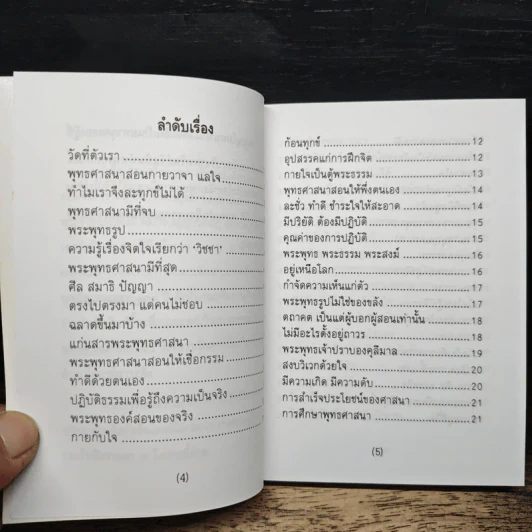 ลำดับเรื่อง
วัดที่ตัวเรา
พุทธศาสนาสอนกายวาจา แลใจ
ทำไมเราจึงละทุกข์ไม่ได้
พุทธศาสนามีที่จบ
พระพุทธรูป
ความรู้เรื่องจิตใจเรียกว่า 'วิชชา'
พระพุทธศาสนามีที่สุด
ศีล สมาธิ ปัญญา
ตรงไปตรงมา แต่คนไม่ชอบ
ฉลาดขึ้นมาบ้าง
แก่นสารพระพุทธศาสนา
พระพุทธศาสนาสอนให้เชื่อกรรม
ทำดีด้วยตนเอง
ปฏิบัติธรรมเพื่อรู้ถึงความเป็นจริง
พระพุทธองค์สอนของจริง
กายกับใจ
(4)
ก้อนทุกข์ 12
อุปสรรคแก่การฝึกจิต 12
กายใจเป็นตู้พระธรรม 13
พุทธศาสนาสอนให้พึ่งตนเอง 14
ละชั่ว ทำดี ชำระใจให้สะอาด 14
มีปริยัติ ต้องมีปฏิบัติ 15
คุณค่าของการปฏิบัติ 15
พระพุทธ พระธรรม พระสงฆ์ 16
อยู่เหนือโลก 16
กำจัดความเห็นแก่ตัว 17
พระพุทธรูปไม่ใช่ของขลัง 17
ตถาคต เป็นแต่ผู้บอกผู้สอนเท่านั้น 18
ไม่มีอะไรตั้งอยู่ถาวร 18
พระพุทธเจ้าปราบองคุลีมาล 19
สงบวิเวกด้วยใจ 20
มีความเกิด มีความดับ 20
การสำเร็จประโยชน์ของศาสนา 21
การศึกษาพุทธศาสนา 21
(5)